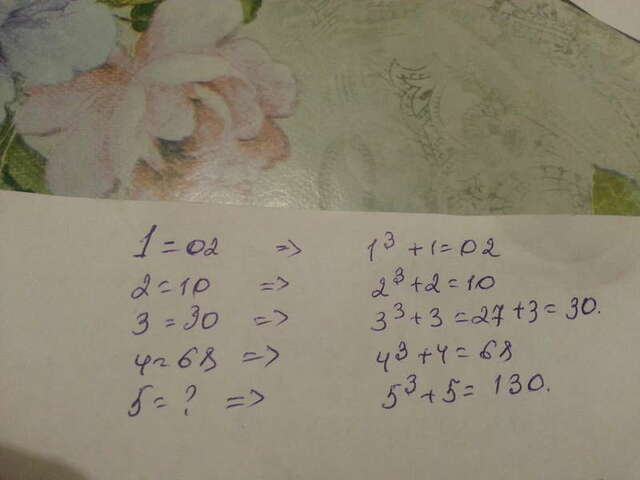 1 = 02 => 1³ + 1 = 02
2 = 10 => 2³ + 2 = 10
3 = 30 => 3³ + 3 = 27 + 3 = 30.
4 = 68 => 4³ + 4 = 68
5 = ? => 5³ + 5 = 130.